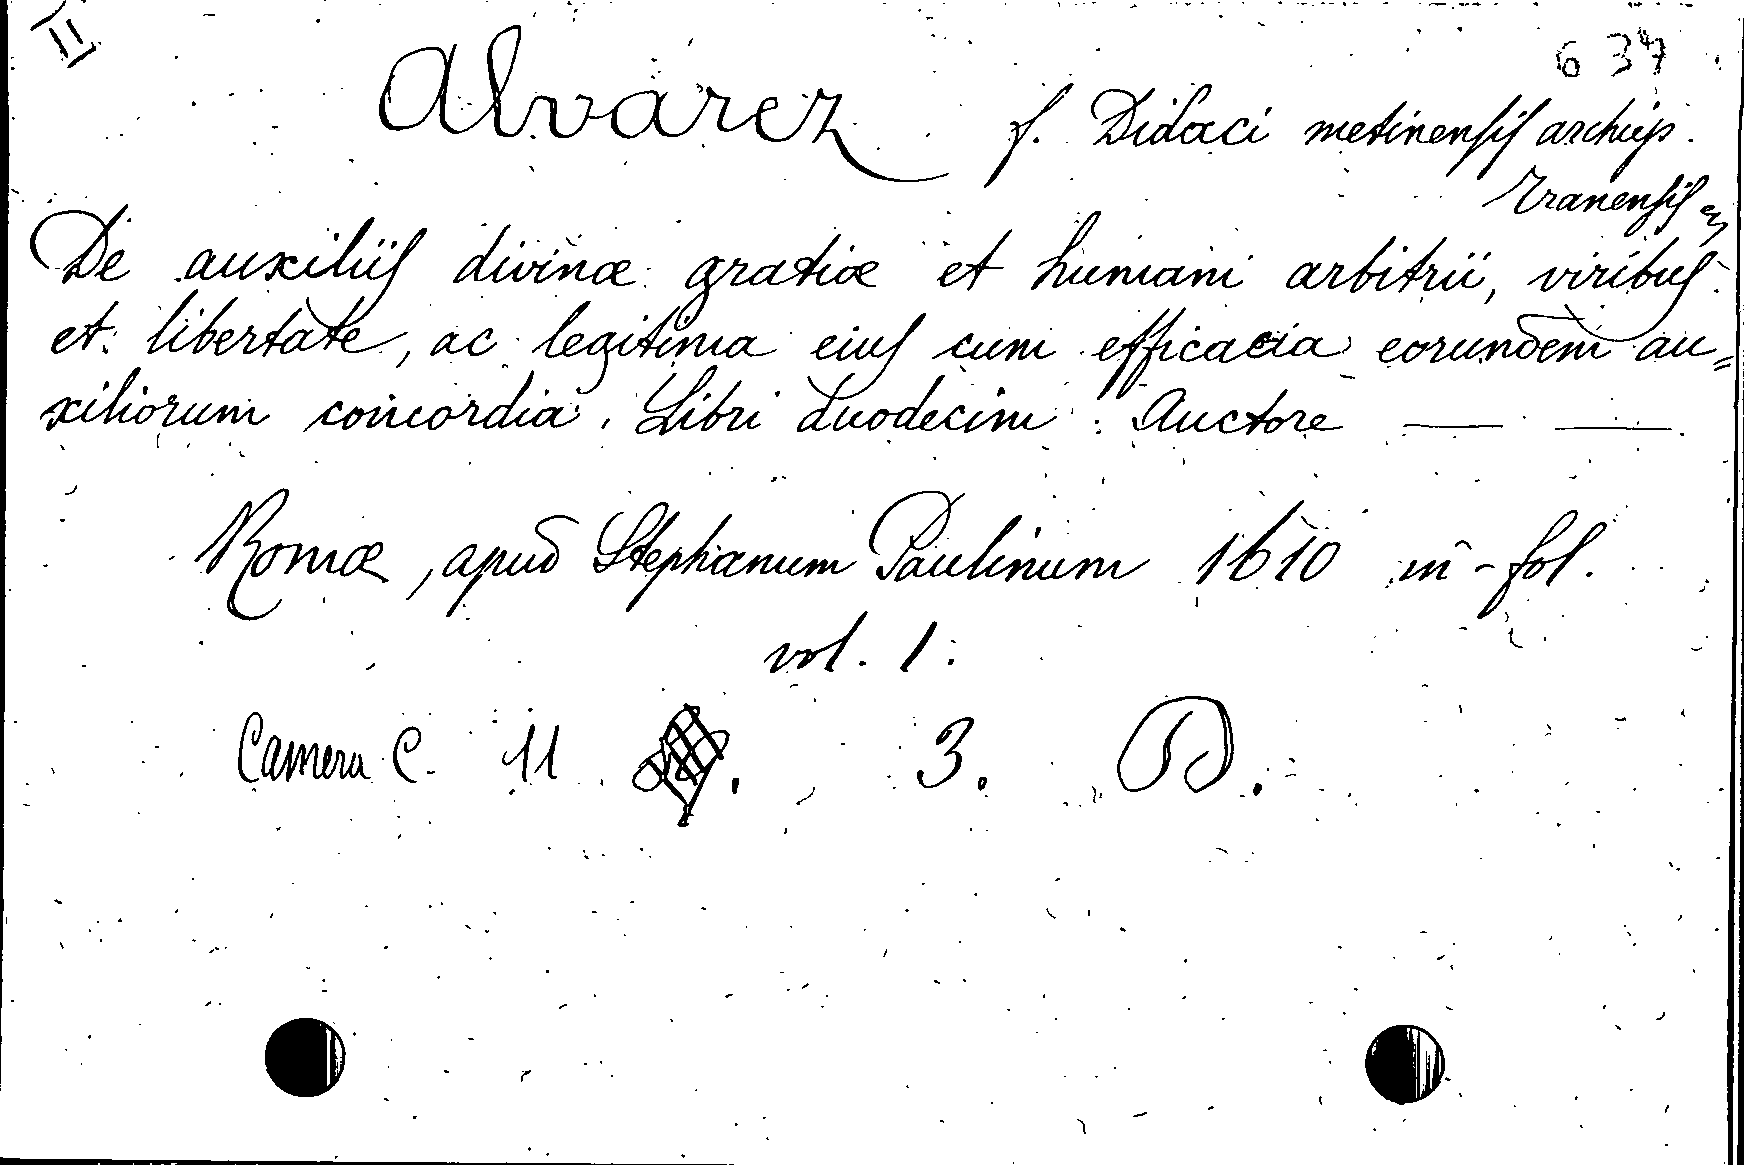 II
637
Alvarez f. Didaci metinensis archiep.
Tranensis
De auxiliis divinæ gratiæ et humani arbitrii, viribus
et libertate, ac legitima eius cum efficacia eorundem au=
xiliorum concordia. Libri duodecim. Auctore — —
Romæ, apud Stephanum Paulinum 1610 in-fol.
vol. 1.
Camera C. 11 3. B.